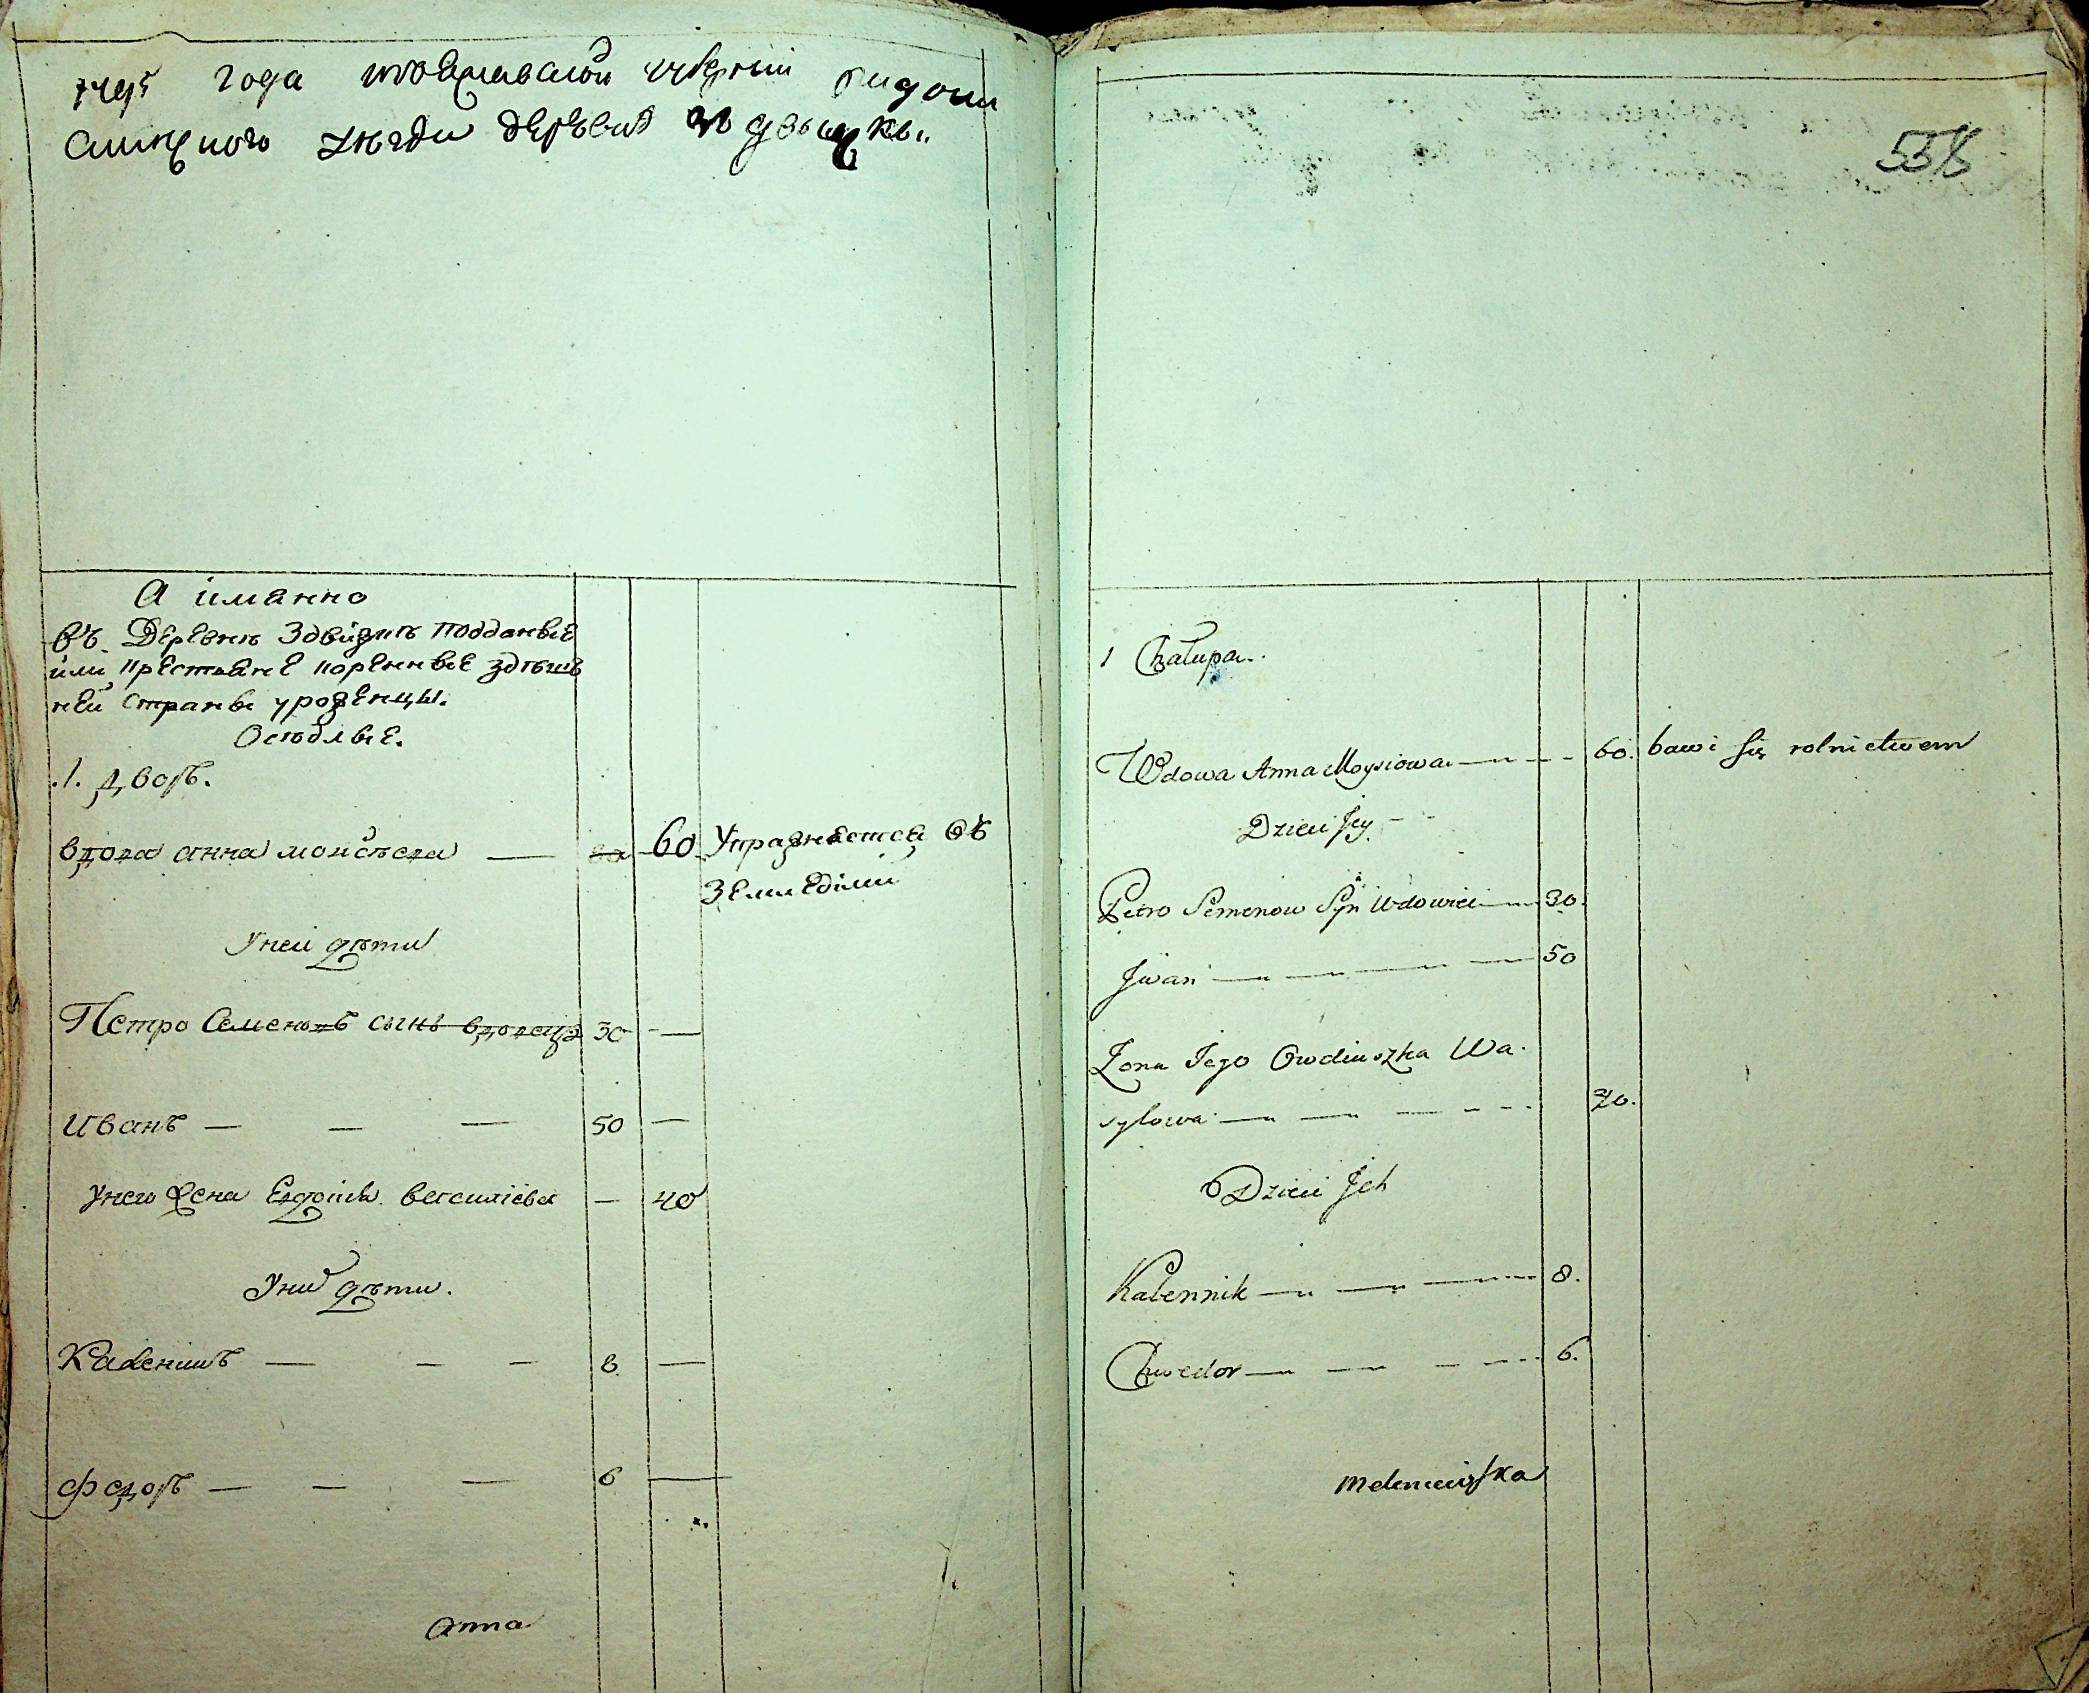 1795 года губернии
ского деревня
А иманно
въ Деревнѣ Здвизпѣ подданые
или крестьяне коренные здѣшь
ней страны уроженцы.
Осѣдлые.
.1. дворъ.
вдова анна моисѣева — 60 Упражняется въ
землѣделіи
У ней дѣти
Петро Семеновъ сынъ вдовецъ 30 — —
Иванъ — — — 50 —
у него жена Евдокия василіева — 40
У них дѣти.
Каленикъ — — — 8. —
Федоръ — — — 6 —
Anna
558
1 Chałupa..
Wdowa Anna Moysiowa — — - - 60. bawi się rolnictwem
Dzieci Jey. - -
Petro Semenow Syn Wdowiec — 30.
Jwan — — — — 50
Żona Jego Owdiuszka Wa.
sylowa — — — - - - 40.
Dzieci Jch
Kalennik — — — 8.
Chwedor — — - - - - 6.